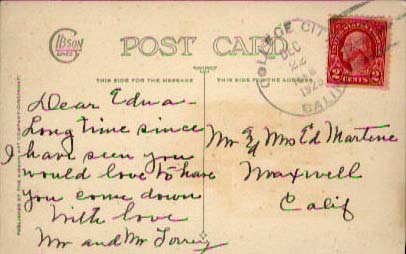 GIBSON
LINES
POST CARD
THIS SIDE FOR THE MESSAGE
THIS SIDE FOR THE ADDRESS
COLLEGE CITY
DEC
22
1925
CALIF
UNITED STATES POSTAGE
2 CENTS 2
Dear Edna-
Long time since
I have seen you
would love to have
you come down
With love
Mr and Mr Torrey
Mr & Mrs Ed Martine
Maxwell
Calif